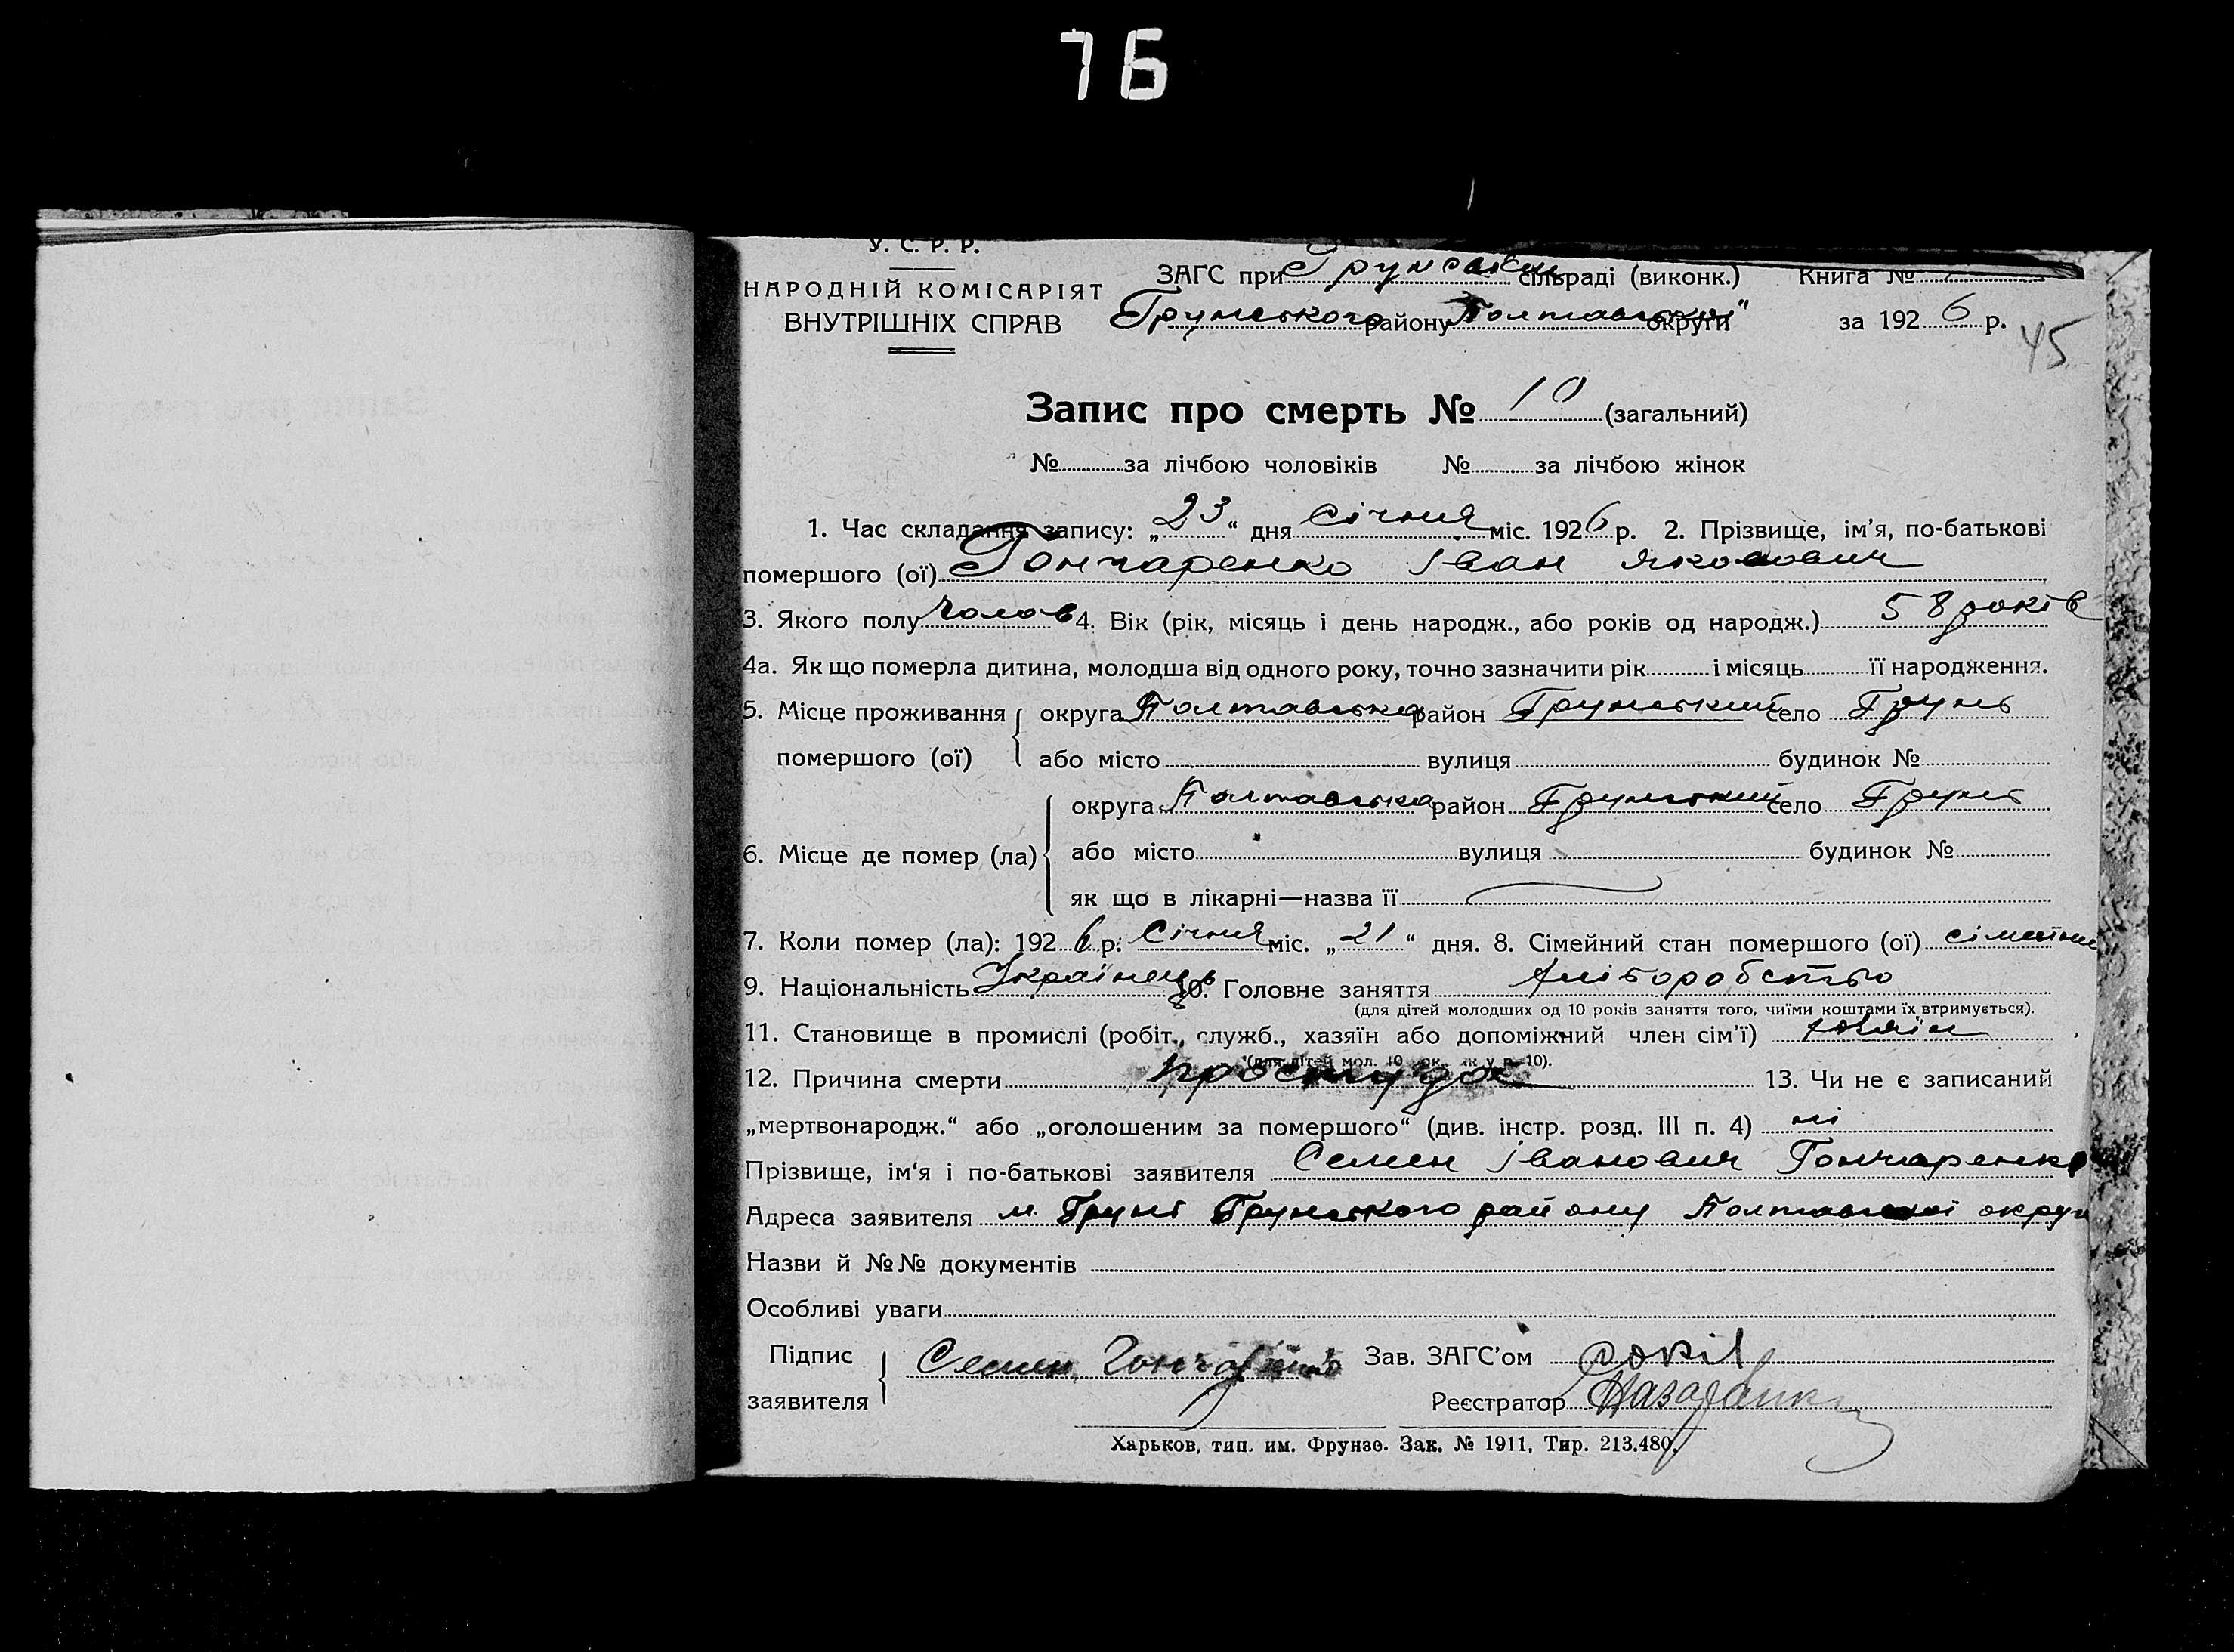 76
У. С. Р. Р.
НАРОДНІЙ КОМІСАРІЯТ
ВНУТРІШНІХ СПРАВ
ЗАГС при Грунській сільраді (виконк.) Книга №
Грунського району Полтавської округи за 1926 р.
45
Запис про смерть № 10 (загальний)
№ за лічбою чоловіків № за лічбою жінок
1. Час складання запису: „23“ дня Січня міс. 1926 р. 2. Прізвище, ім'я, по-батькові
помершого (ої) Гончаренко Іван Якович
3. Якого полу Чолов 4. Вік (рік, місяць і день народж., або років од народж.) 58 років
4а. Як що померла дитина, молодша від одного року, точно зазначити рік і місяць її народження.
5. Місце проживання округа Полтавська район Грунський село Грунь
помершого (ої) або місто вулиця будинок №
округа Полтавська район Грунський село Грунь
6. Місце де помер (ла) або місто вулиця будинок №
як що в лікарні—назва її
7. Коли помер (ла): 1926 р. Січня міс. „21“ дня. 8. Сімейний стан помершого (ої) сімейний
9. Національність Українець 10. Головне заняття хліборобство
(для дітей молодших од 10 років заняття того, чиїми коштами їх втримується).
11. Становище в промислі (робіт., служб., хазяїн або допоміжний член сім'ї) хазяїн
(для дітей мол. 10 рок. як у п. 10).
12. Причина смерти простуда 13. Чи не є записаний
„мертвонародж.“ або „оголошеним за помершого“ (див. інстр. розд. III п. 4) ні
Прізвище, ім'я і по-батькові заявителя Семен Іванович Гончаренко
Адреса заявителя м. Грунь Грунського району Полтавської округи
Назви й №№ документів
Особливі уваги
Підпис заявителя Семен Гончаренко Зав. ЗАГС'ом Сокіл
Реєстратор
Харьков, тип. им. Фрунзе. Зак. № 1911, Тир. 213.480.